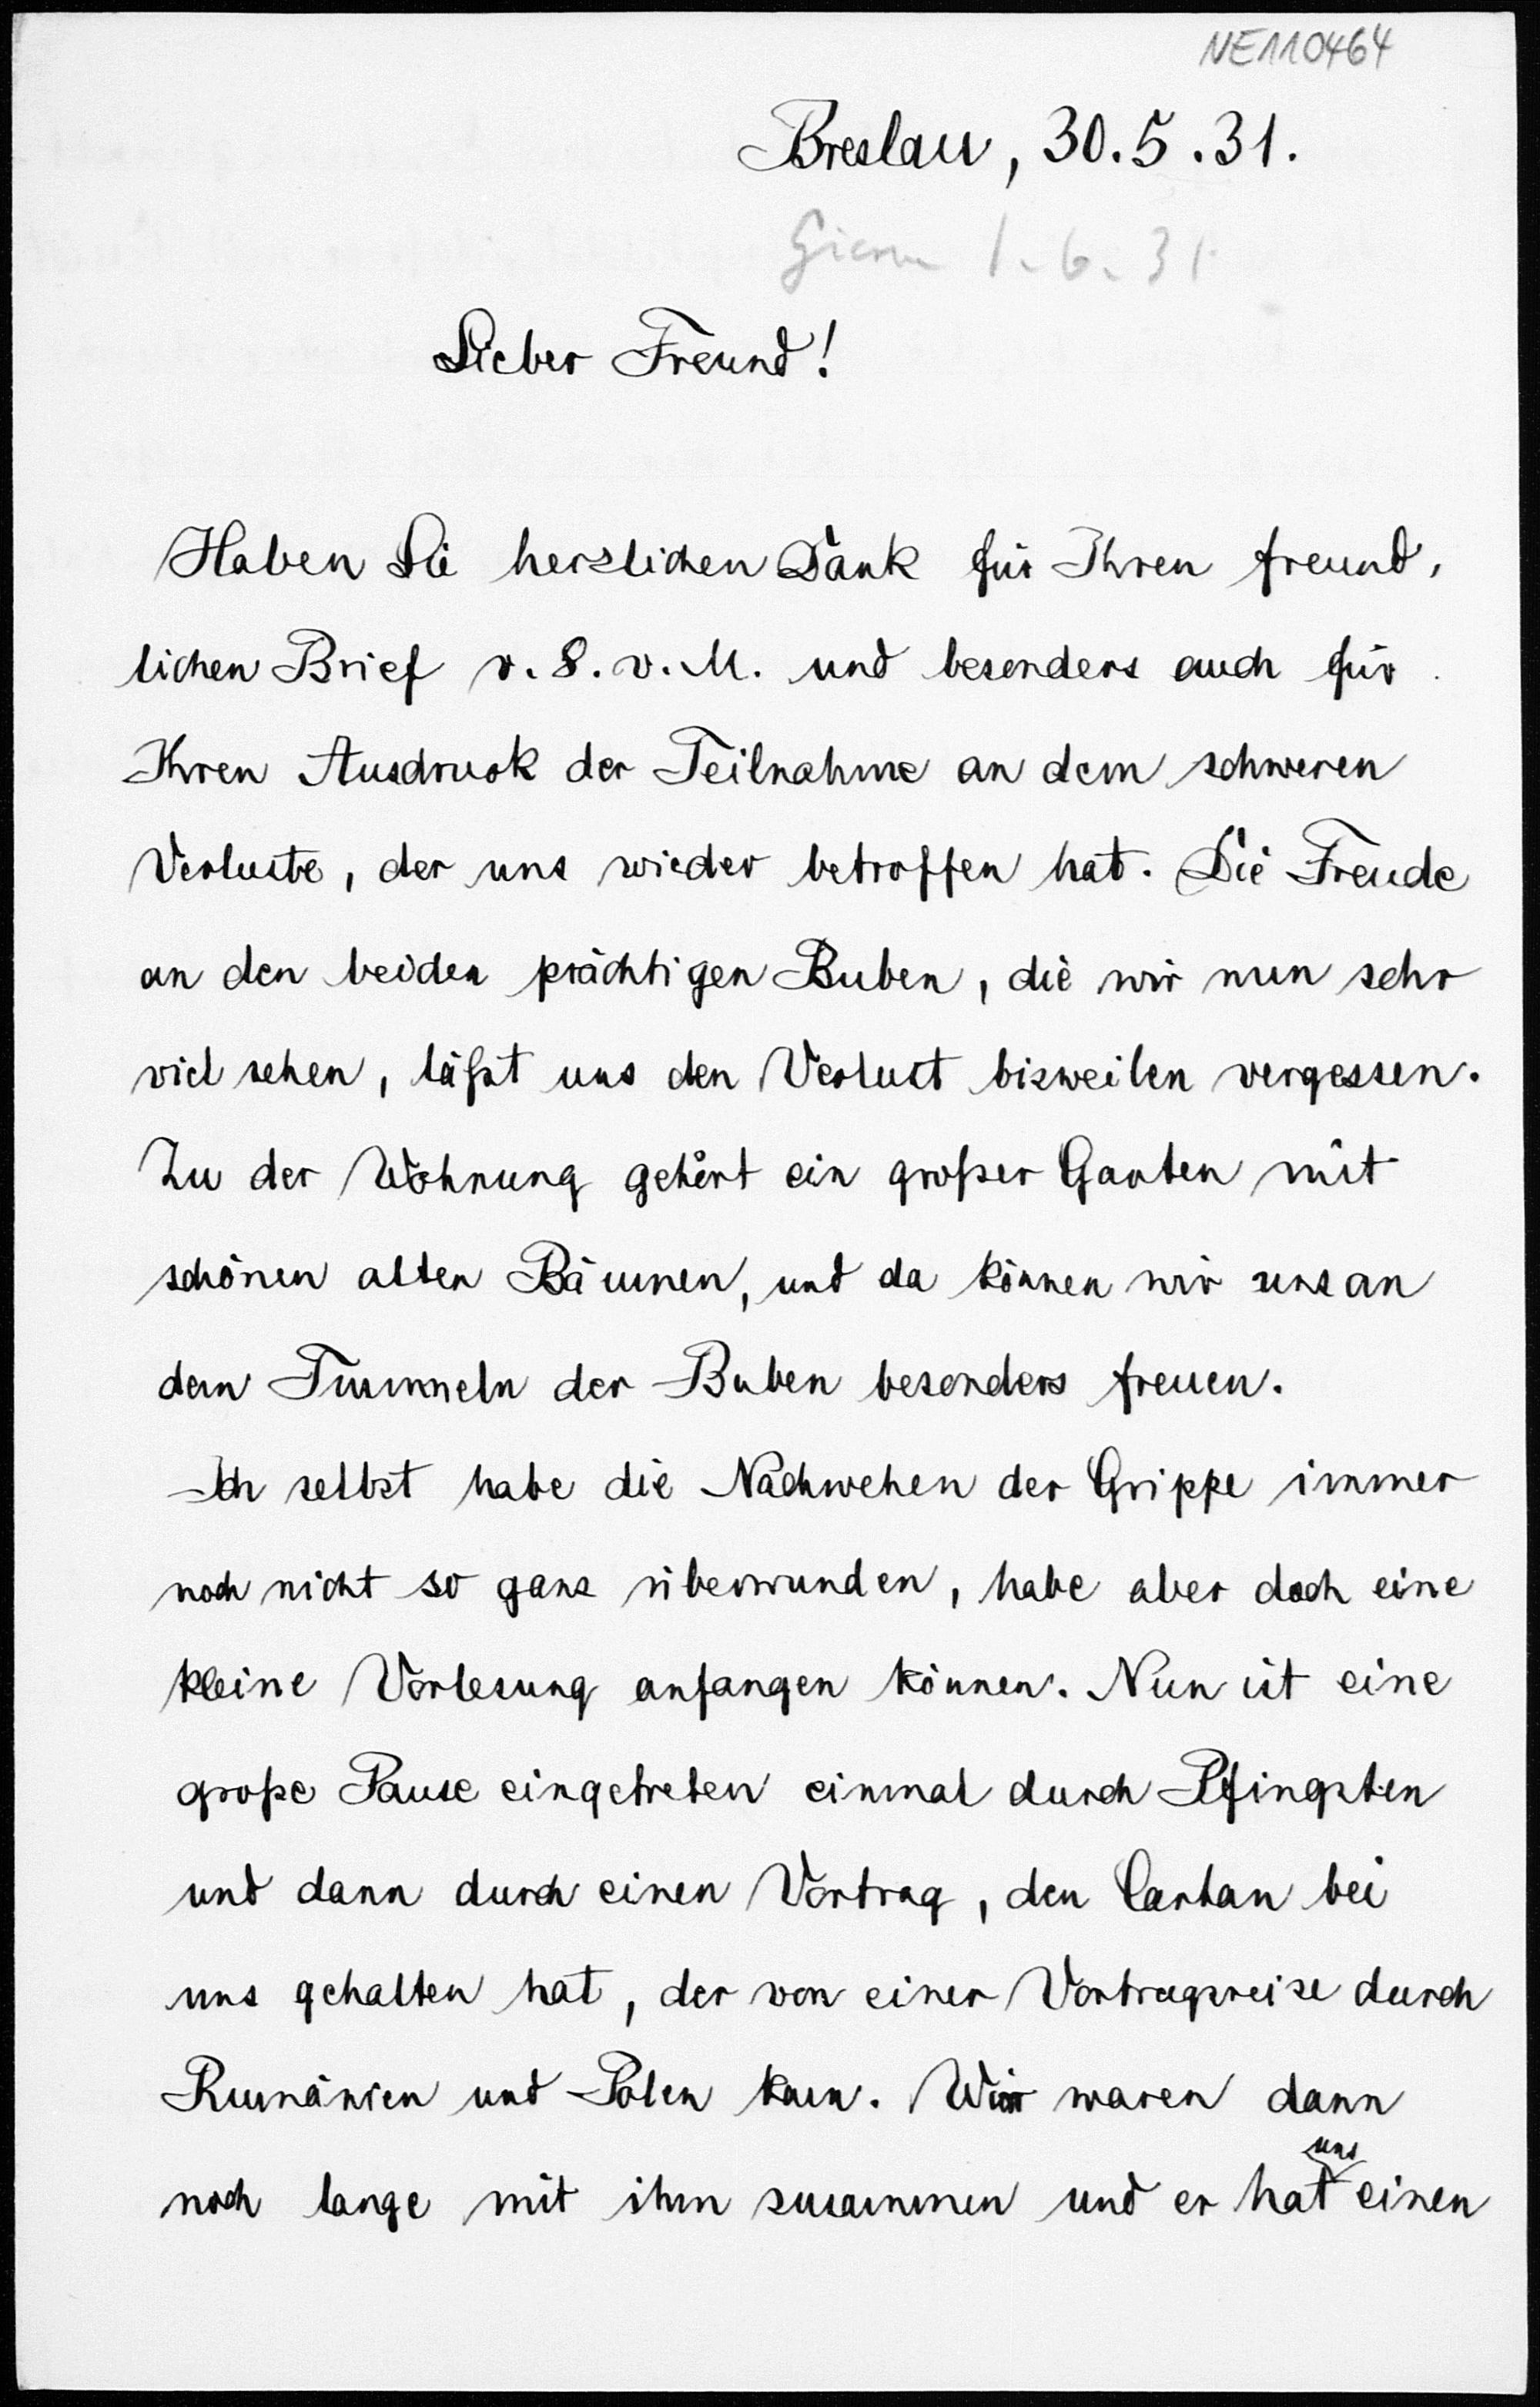 NE110464
Breslau, 30.5.31.
1.6.31
Lieber Freund!
Haben Sie herzlichen Dank für Ihren freund-
lichen Brief v. 8. v. M. und besonders auch für
Ihren Ausdruck der Teilnahme an dem schweren
Verluste, der uns wieder betroffen hat. Die Freude
an den beiden prächtigen Buben, die wir nun sehr
viel sehen, läßt uns den Verlust bisweilen vergessen.
Zu der Wohnung gehört ein großer Garten mit
schönen alten Bäumen, und da können wir uns an
dem Tummeln der Buben besonders freuen.
Ich selbst habe die Nachwehen der Grippe immer
noch nicht so ganz überwunden, habe aber doch eine
kleine Vorlesung anfangen können. Nun ist eine
große Pause eingetreten einmal durch Pfingsten
und dann durch einen Vortrag, den Cartan bei
uns gehalten hat, der von einer Vortragsreise durch
Rumänien und Polen kam. Wir waren dann
noch lange mit ihm zusammen und er hat uns einen